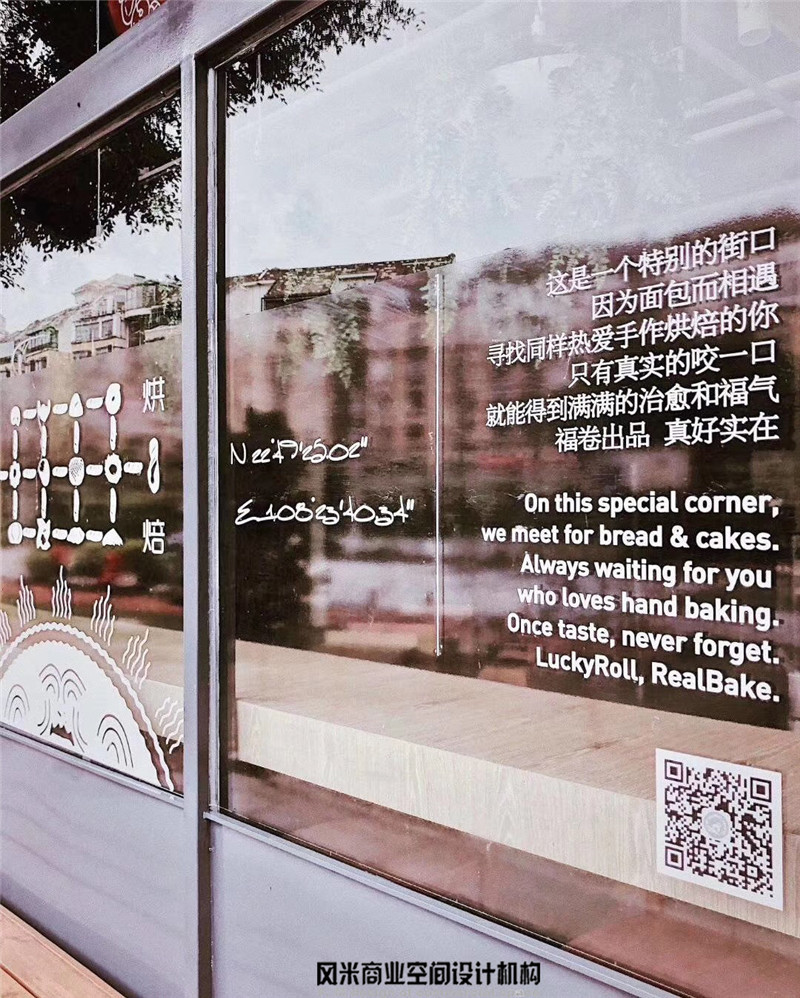 烘
焙
N 22°49'25.02"
E 108°23'40.34"
这是一个特别的街口
因为面包而相遇
寻找同样热爱手作烘焙的你
只有真实的咬一口
就能得到满满的治愈和福气
福卷出品 真好实在
On this special corner,
we meet for bread & cakes.
Always waiting for you
who loves hand baking.
Once taste, never forget.
LuckyRoll, RealBake.
风米商业空间设计机构